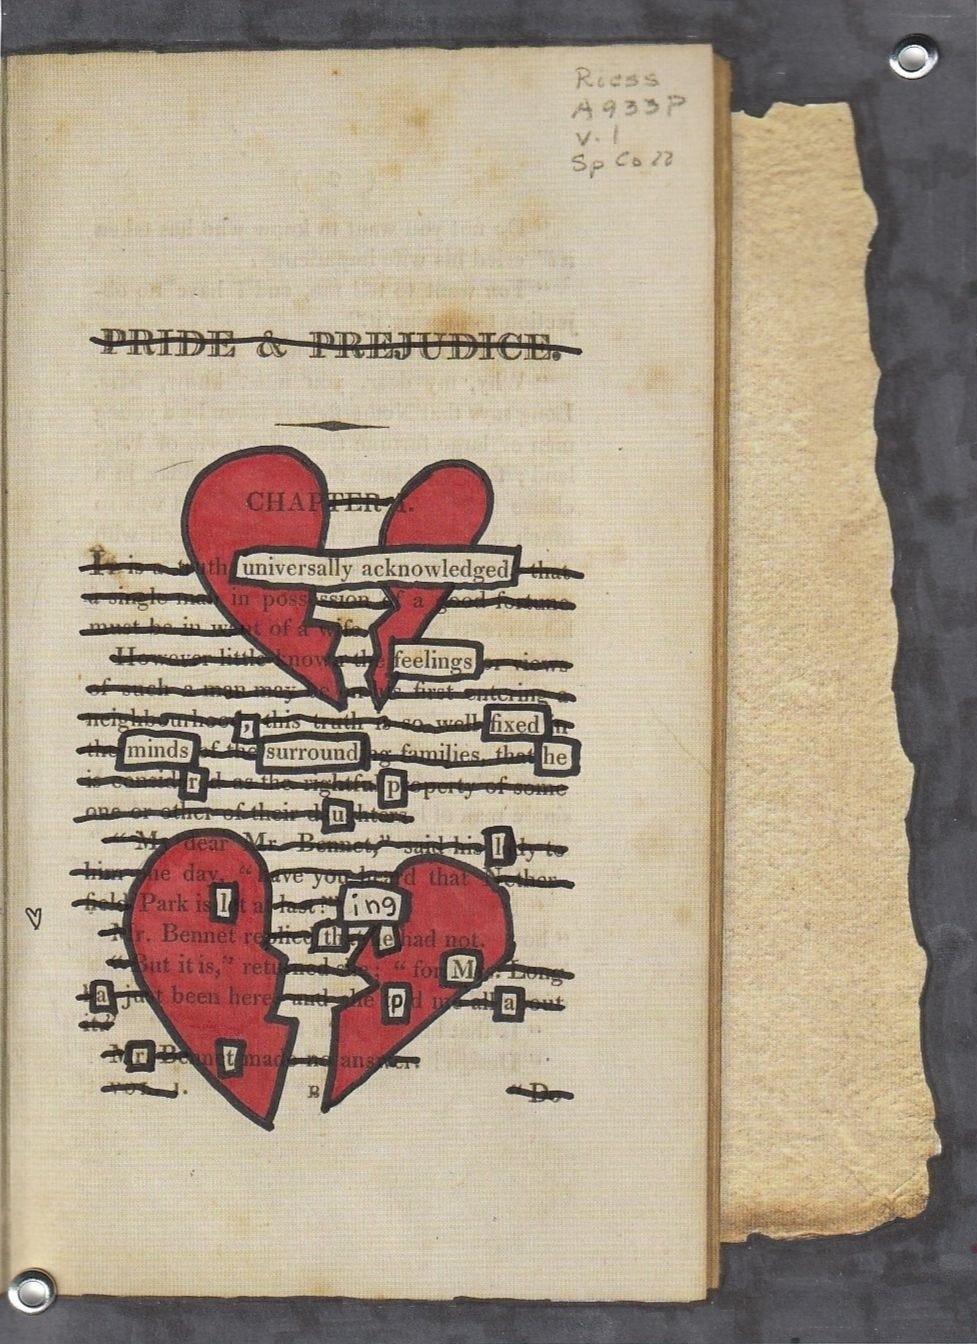 Riess
A933P
v. 1
Sp Co ll
PRIDE & PREJUDICE.
CHAPTER I.
It is a truth universally acknowledged that
a single man in possession of a good fortune
must be in want of a wife.
However little known the feelings or views
of such a man may be on his first entering a
neighbourhood, this truth is so well fixed in
the minds of the surrounding families, that he
is considered as the rightful property of some
one or other of their daughters.
"My dear Mr. Bennet," said his lady to
him one day, "have you heard that Nether-
field Park is let at last?" ing
Mr. Bennet replied that he had not.
"But it is," returned she; "for Mrs. Long
has just been here, and she told me all about
it."
Mr. Bennet made no answer.
VOL. I. B "Do